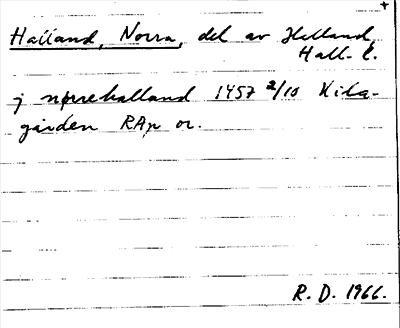 +
Halland, Norra, del av Halland,
Hall. l.
j nørrehalland 1457 2/10 Kila-
gården RAp or.
R. D. 1966.